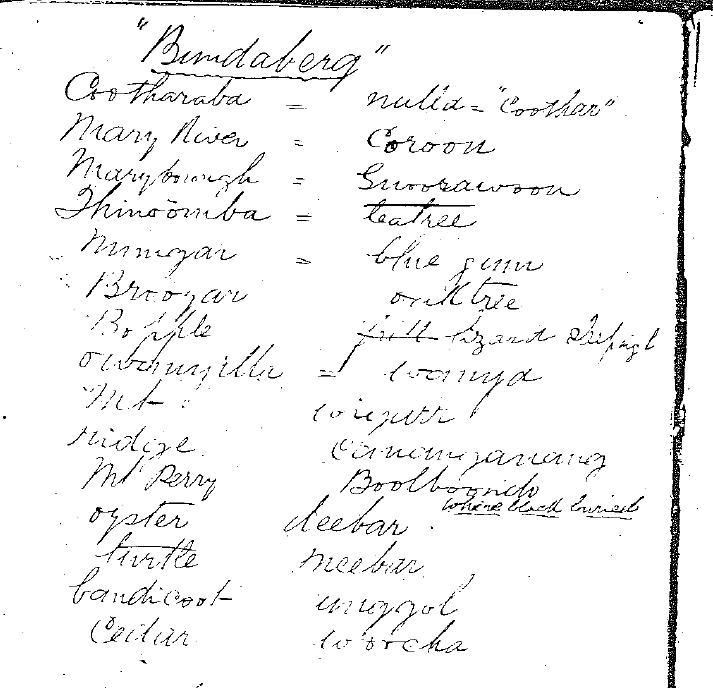 "Bundaberg"
Cootharaba = nulla = "Coothar"
Mary River = Coroon
Maryborough = Gnoorawoon
Thinoomba = teatree
Mungar = blue gum
Broogar oaktree
Bopple frill lizard
Owanyilla = wonya
Mt
ridge
Mt Perry Boolboonda
where black buried
oyster deebar
turtle meebar
bandicoot unggol
Cedar woocha